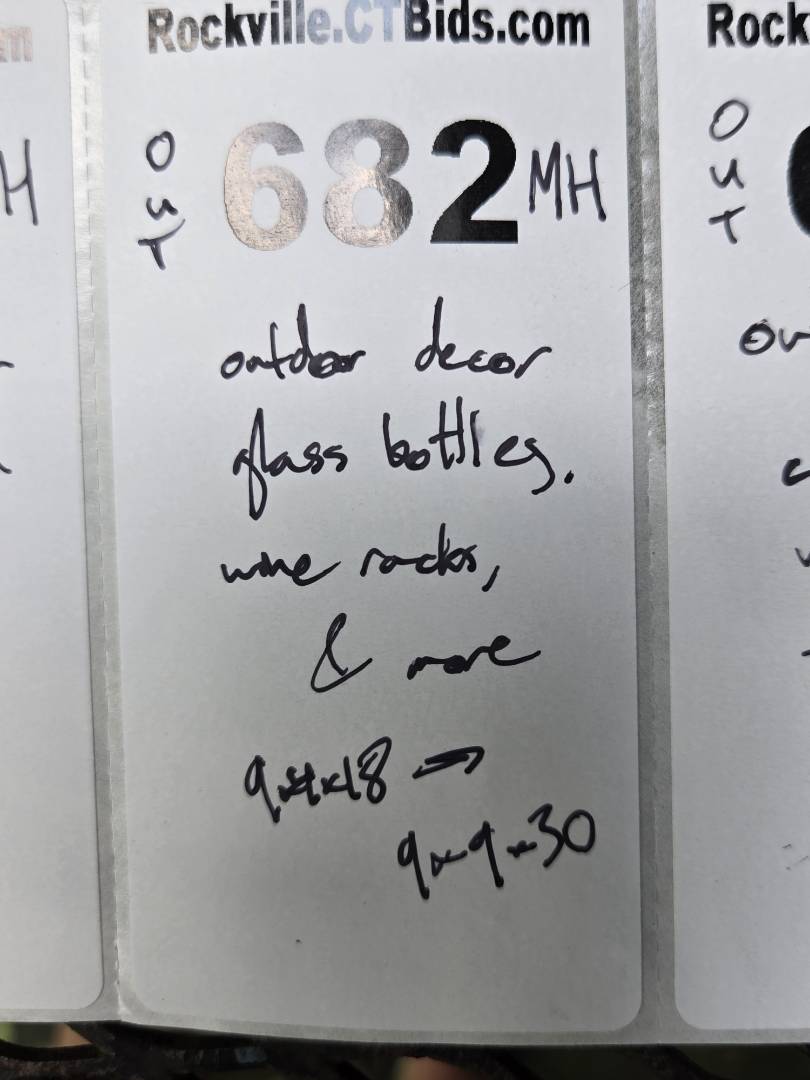 Rockville.CTBids.com
Rock
OUT
682 MH
H
OUT
outdoor decor
glass bottles.
wine racks,
& more
9x4x18 →
9x9x30